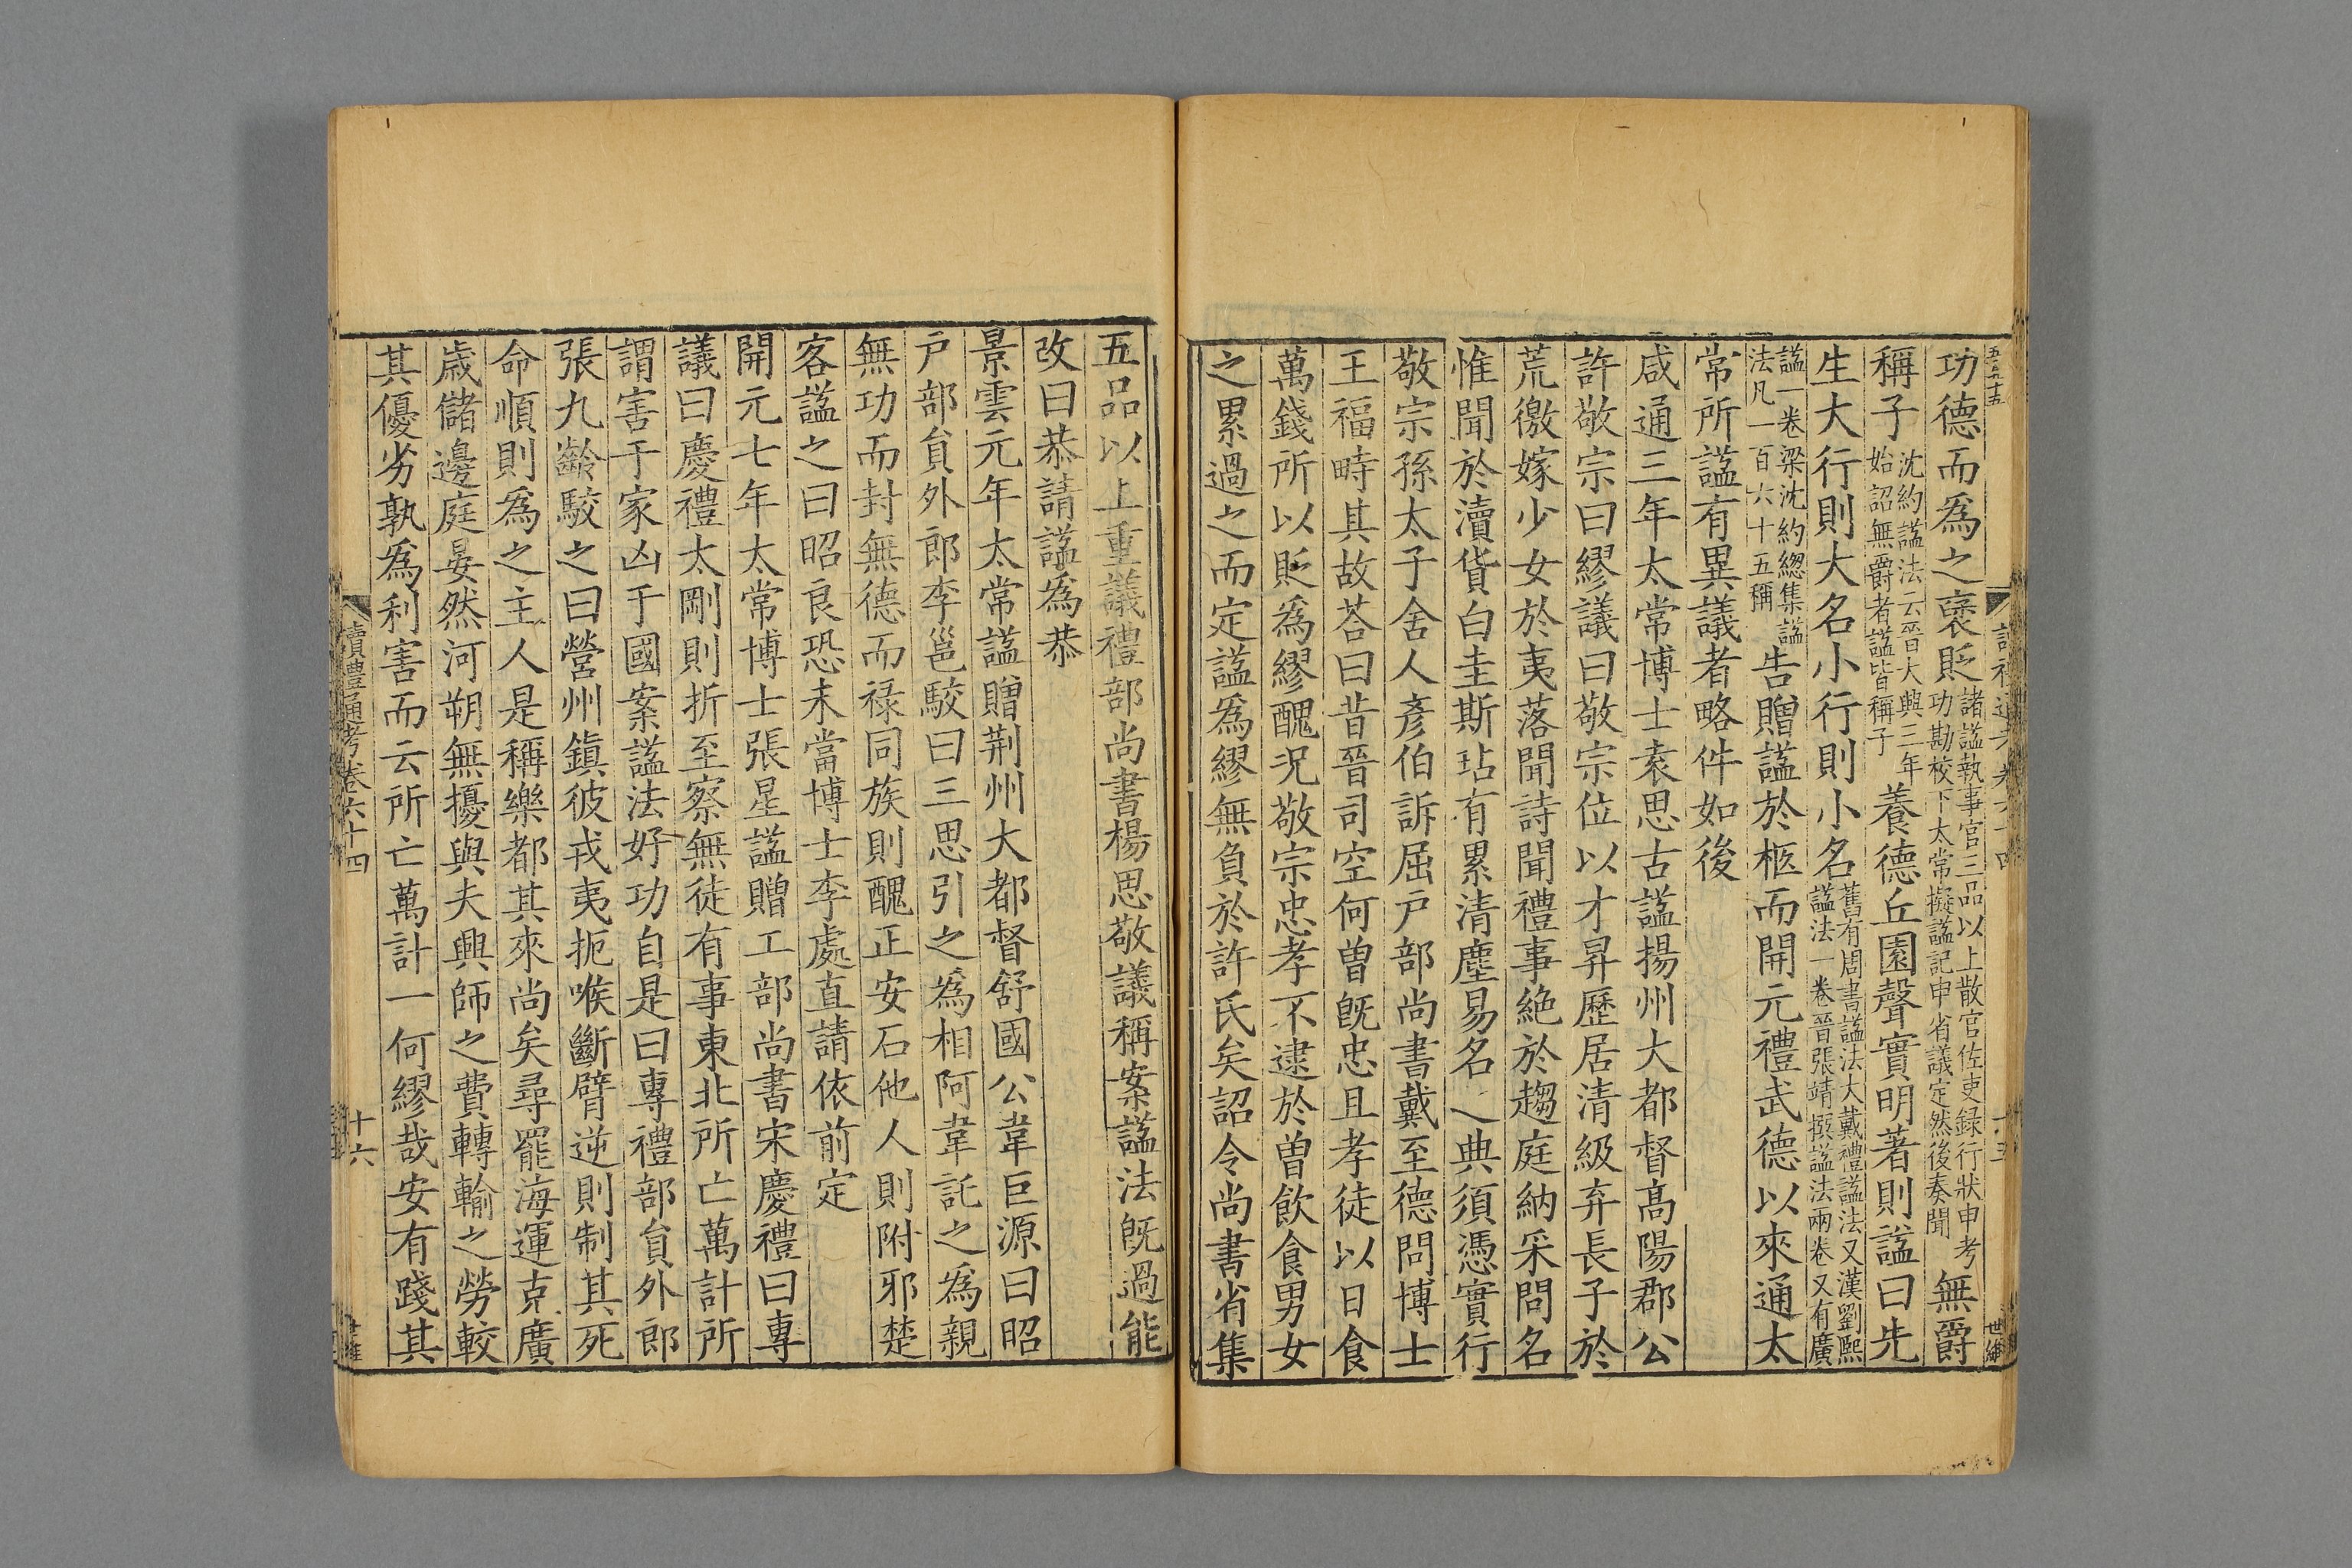 功德而為之襃貶諸謚執事官三品以上散官佐吏録行狀申考功勘校下太常擬謚記申省議定然後奏聞無爵
稱子沈約謚法云晉大興三年始詔無爵者謚皆稱子養德丘園聲實明著則謚曰先
生大行則大名小行則小名舊有周書謚法大戴禮謚法又漢劉熙謚法一卷晉張靖撰謚法兩卷又有廣
謚一卷梁沈約緫集謚法凡一百六十五稱告贈謚於柩而開元禮武德以來通太
常所謚有異議者略件如後
咸通三年太常博士袁思古謚揚州大都督高陽郡公
許敬宗曰繆議曰敬宗位以才昇歷居清級弃長子於
荒徼嫁少女於夷落聞詩聞禮事絶於趨庭納采問名
惟聞於瀆貨白圭斯玷有累清塵易名之典須憑實行
敬宗孫太子舍人彥伯訴屈户部尚書戴至德問博士
王福畤其故荅曰昔晉司空何曽旣忠且孝徒以日食
萬錢所以貶為繆醜况敬宗忠孝不逮於曽飲食男女
之累過之而定謚為繆無負於許氏矣詔令尚書省集
五品以上重議禮部尚書楊思敬議稱案謚法旣過能
改曰恭請謚為恭
景雲元年太常謚贈荆州大都督舒國公韋巨源曰昭
户部貟外郎李邕駮曰三思引之為相阿韋託之為親
無功而封無德而禄同族則醜正安石他人則附邪楚
客謚之曰昭良恐未當博士李處直請依前定
開元七年太常博士張星謚贈工部尚書宋慶禮曰專
議曰慶禮太剛則折至察無徒有事東北所亡萬計所
謂害于家凶于國案謚法好功自是曰專禮部貟外郎
張九齡駮之曰營州鎮彼戎夷扼喉斷臂逆則制其死
命順則為之主人是稱樂都其來尚矣尋罷海運克廣
歳儲邊庭晏然河朔無擾與夫興師之費轉輸之勞較
其優劣孰為利害而云所亡萬計一何繆哉安有踐其
讀禮通考卷六十四
十六